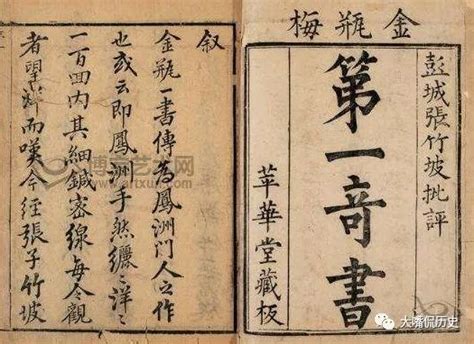 金瓶梅
彭城張竹坡批評
第一竒書
苹華堂藏板
叙
金瓶一書傳為鳳洲門人之作
也或云即鳳洲手然纚〻洋〻
一百回内其細鍼密線每令觀
者望洋而嘆今經張子竹坡
博宝艺术网
www.artxun.com
大嘴侃历史